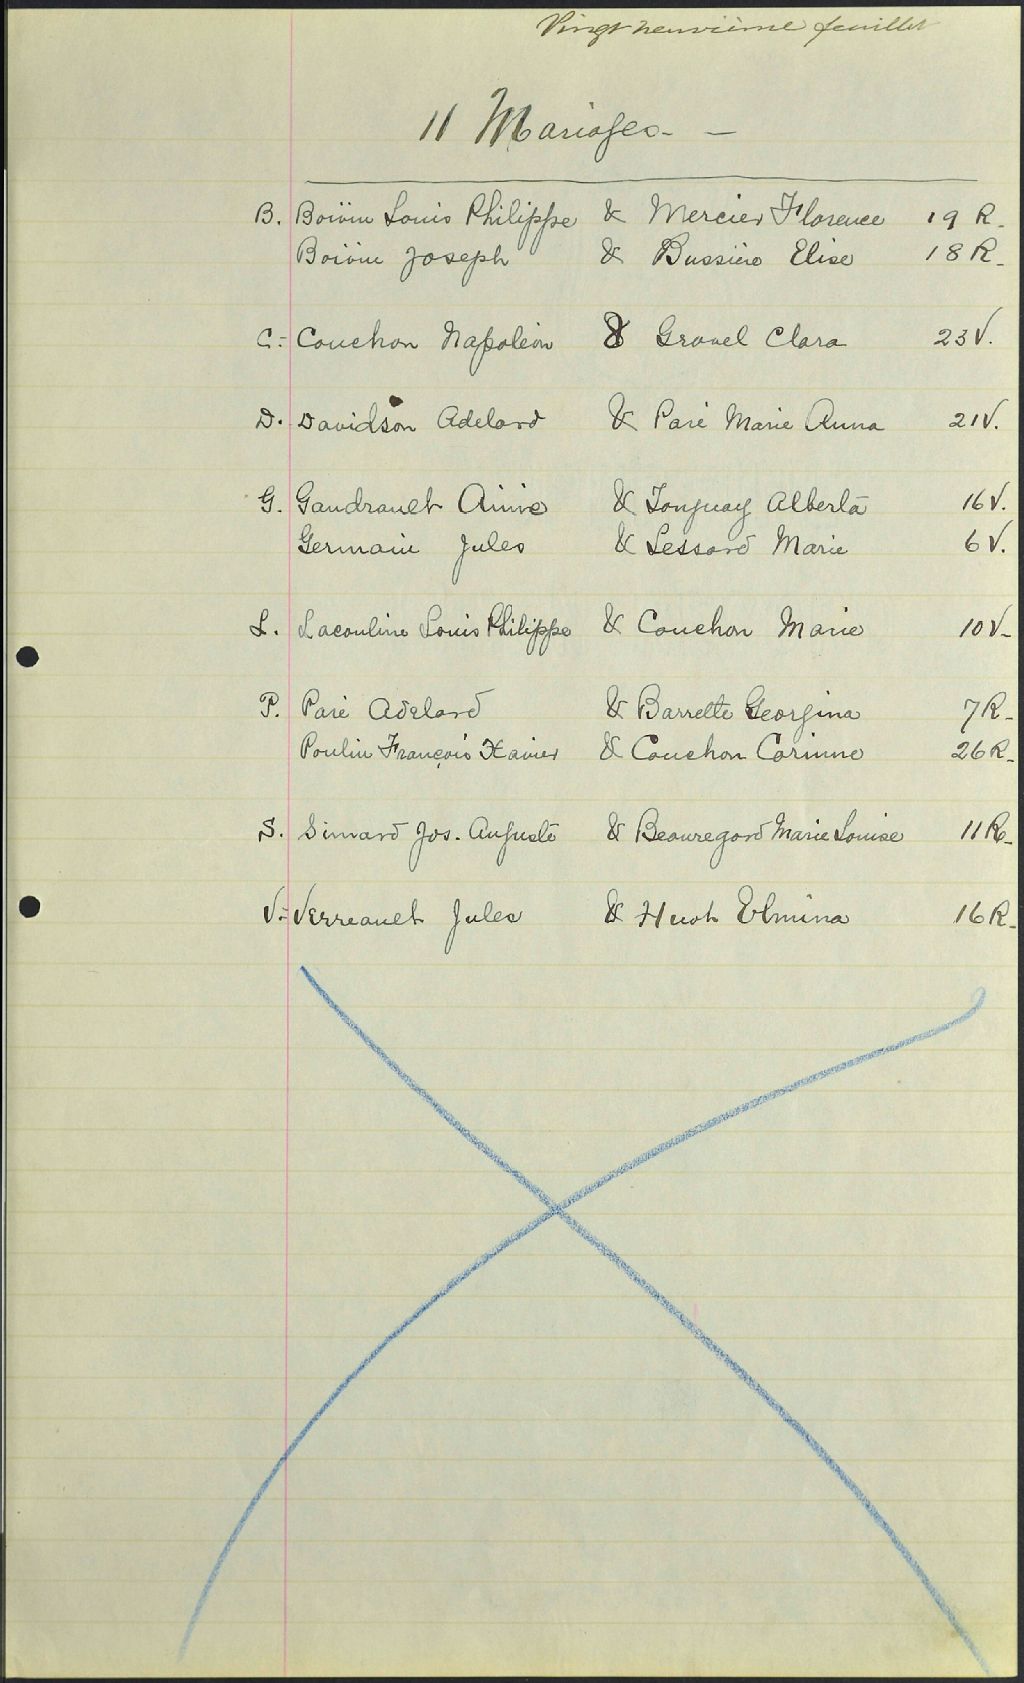 Vingt neuvième feuillet
11 Mariages - —
B. Boivin Louis Philippe & Mercier Florence 19 R.
Boivin Joseph & Bussière Elise 18 R.
C. Couchon Napoléon & Gravel Clara 23 V.
D. Davidson Adelard & Paré Marie Anna 21 V.
G. Gaudrault Aimé & Tanguay Alberta 16 V.
Germain Jules & Lessard Marie 6 V.
L. Lacouline Louis Philippe & Couchon Marie 10 V.
P. Paré Adelard & Barrette Georgina 7 R.
Poulin François Xavier & Couchon Corinne 26 R.
S. Simard Jos. Auguste & Beauregard Marie Louise 11 R.
V. Verreault Jules & Huot Elmina 16 R.